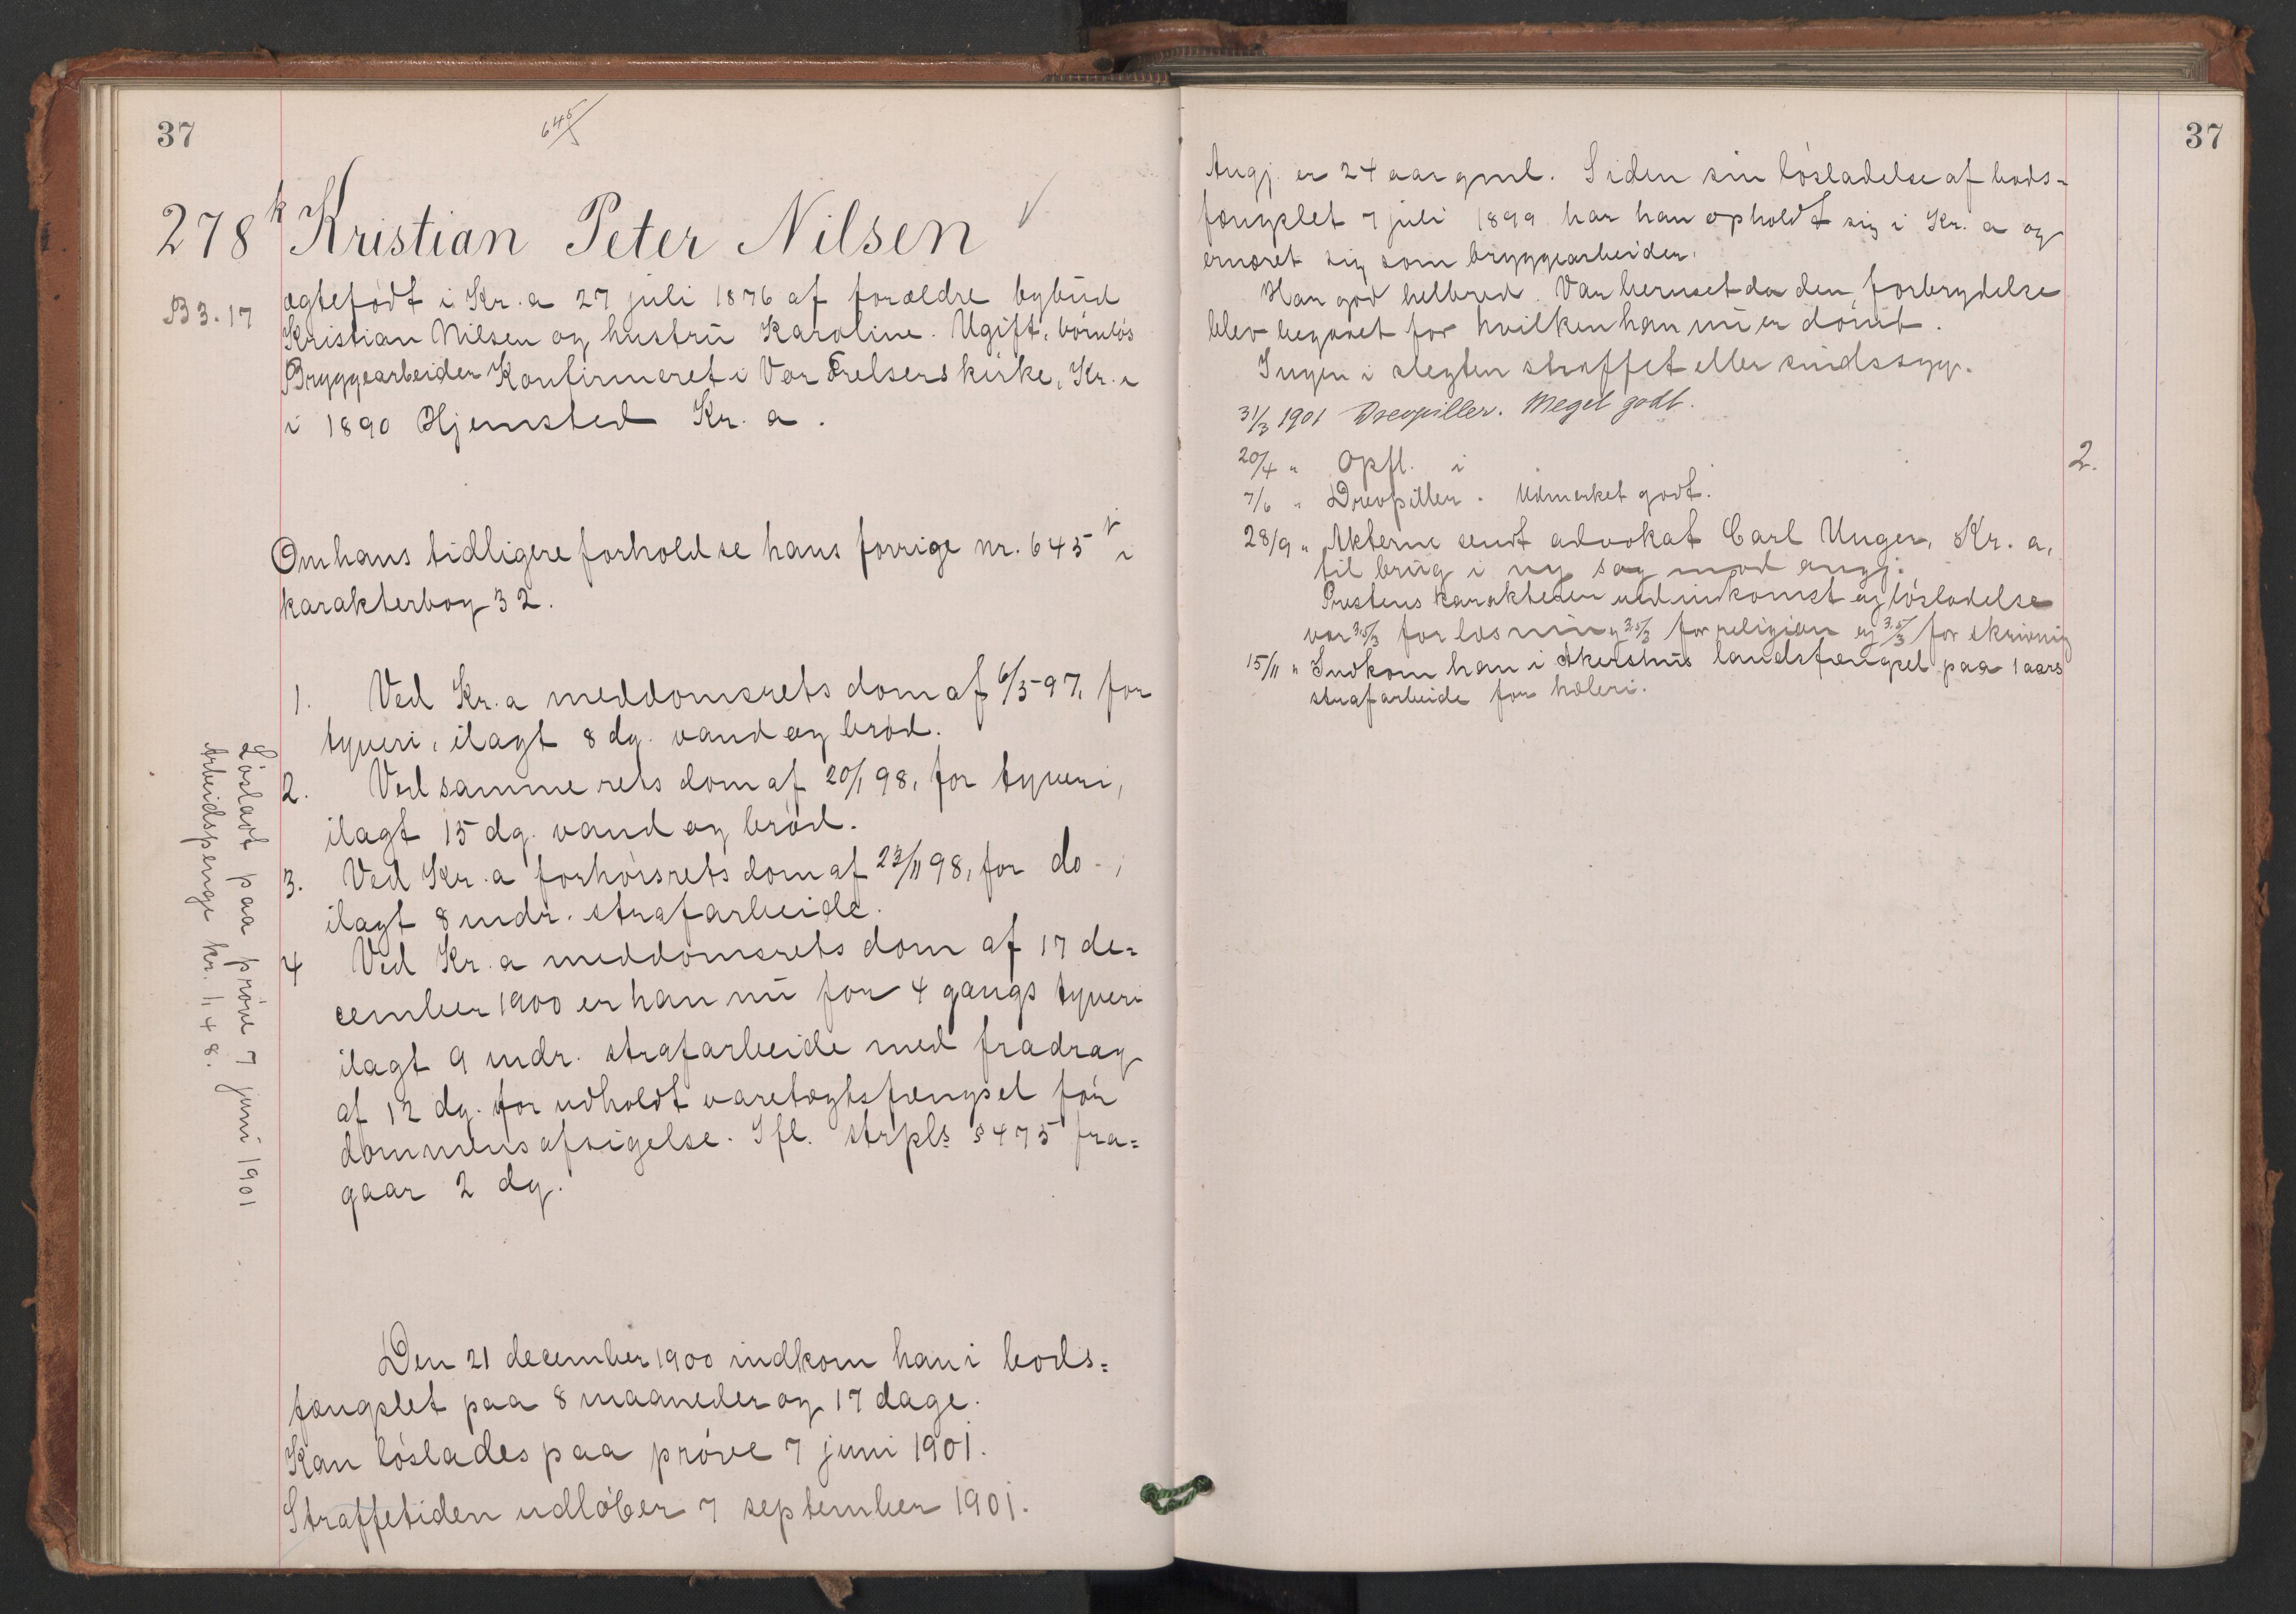 37
645
278 k Kristian Peter Nilsen
B 3. 17
ægtefødt i Kr. a 27 juli 1876 af forældre bybud
Kristian Nilsen og hustru Karoline. Ugift, børnløs
Bryggearbeider Konfirmeret i Vor Frelsers kirke, Kr. a
i 1890 Hjemsted Kr. a.
Om hans tidligere forhold se hans forrige nr. 645 i
karakterbog 32.
1. Ved Kr. a meddomsrets dom af 6/5 97, for
tyveri, ilagt 8 dg. vand og brød.
2. Ved samme rets dom af 20/1 98, for tyveri,
ilagt 15 dg. vand og brød.
3. Ved Kr. a forhørsrets dom af 23/11 98, for do -,
ilagt 8 mdr. strafarbeide.
4 Ved Kr. a meddomsrets dom af 17 de=
cember 1900 er han nu for 4 gangs tyveri
ilagt 9 mdr. strafarbeide med fradrag
af 12 dg. for udholdt varetægtsfængsel før
dommens afsigelse. Ifl. strpls § 475 fra=
gaar 2 dg.
Løsladt paa prøve 7 juni 1901
Arbeidspenge kr. 11 48.
Den 21 december 1900 indkom han i bods=
fængslet paa 8 maaneder og 17 dage.
Kan løslades paa prøve 7 juni 1901.
Straffetiden udløber 7 september 1901.
37
Angj. er 24 aar gml. Siden sin løsladelse af bods=
fængslet 7 juli 1899 har han opholdt sig i Kr. a og
ernæret sig som bryggearbeider.
Har god helbred. Var beruset da den forbrydelse
blev begaaet for hvilken han nu er dømt.
Ingen i slegten straffet eller sindssyg.
31/3 1901 Drevpiller. Meget godt.
20/4 " Opfl. i 2.
7/6 " Drevpiller. Udmerket godt.
28/9 " Akterne sendt advokat Carl Unger, Kr. a,
til brug i ny sag mod angj.
Prestens karakterer ved indkomst og løsladelse
var 3.5/3 for læsning 3.5/3 for religion og 3.5/3 for skrivning
15/11 " Indkom han i Akershus landsfængsel paa 1 aars
strafarbeide for hæleri.